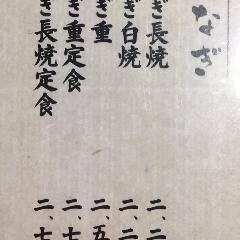 なぎ
ぎ長焼 二、二
ぎ白焼 二、二
ぎ重 二、五
ぎ重定食 二、七
ぎ長焼定食 二、七